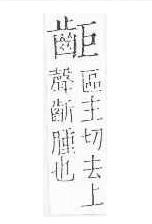 䶙
區主切去上
聲齗腫也